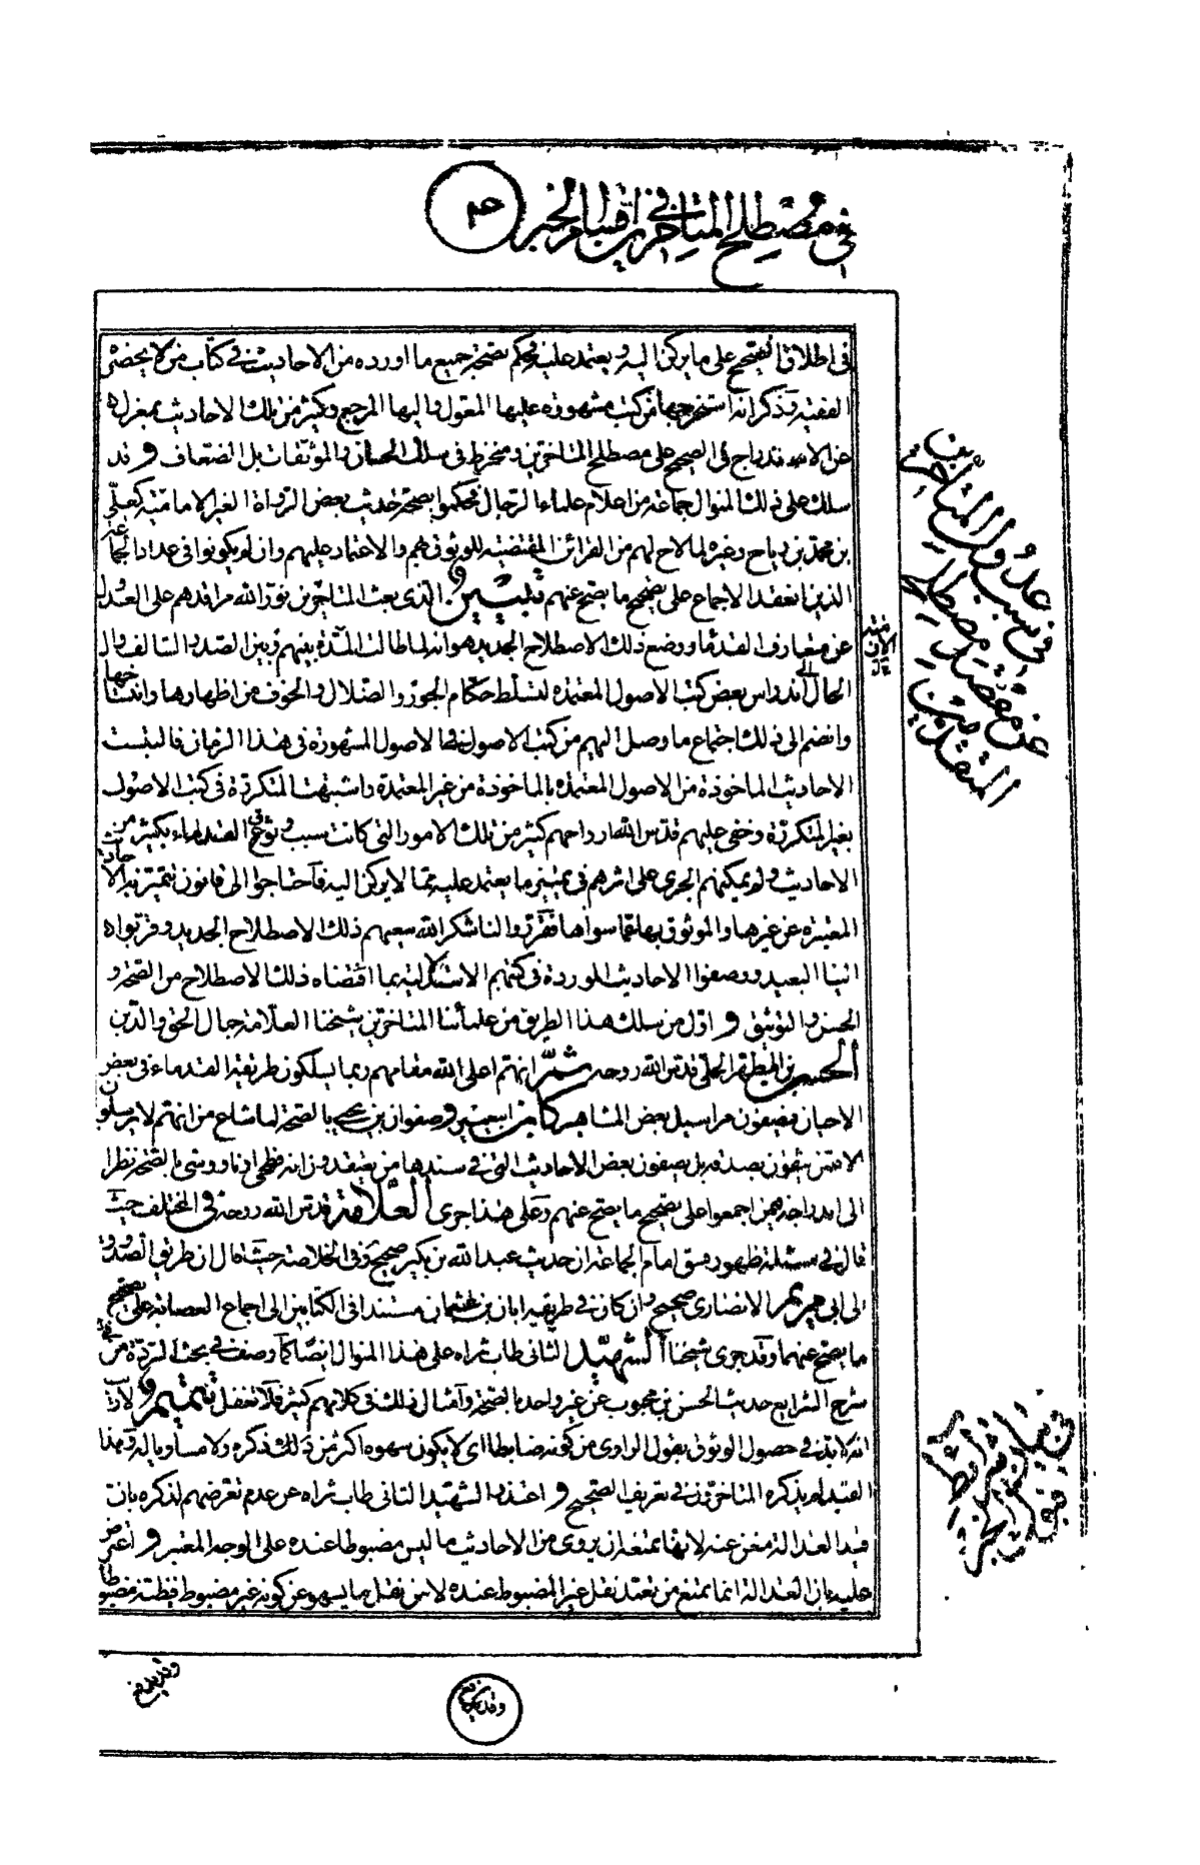 في مصطلح المتأخرين في اقسام الخبر
في اطلاق الصحيح على ما يركن اليه ويعتمد عليه فحكم بصحة جميع ما اورده من الاحاديث في كتاب من لا يحضره
الفقيه وذكر انه استخرجها من كتب مشهورة عليها المعول واليها المرجع وكثير من تلك الاحاديث بمعزل
عن الاندراج في الصحيح على مصطلح المتاخرين ومنخرط في سلك الحسان والموثقات بل الضعاف وقد
سلك على ذلك المنوال جماعة من اعلام علماء الرجال فحكموا بصحة حديث بعض الرواة الغير الامامية كعلي
بن محمد بن رياح وغيره لما لاح لهم من القرائن المقتضية للوثوق بهم والاعتماد عليهم وان لم يكونوا في عداد الجماعة
الذين انعقد الاجماع على تصحيح ما يصح عنهم تبيين والذي بعث المتاخرين نور الله مراقدهم على العدول
عن متعارف القدماء ووضع ذلك الاصطلاح الجديد هو انه لما طالت المدة بينهم وبين الصدر السالف وآل
الحال الى اندراس بعض كتب الاصول المعتمدة لتسلط حكام الجور والضلال والخوف من اظهارها وانتساخها
وانضم الى ذلك اجتماع ما وصل اليهم من كتب الاصول في الاصول المشهورة في هذا الزمان فالتبست
الاحاديث الماخوذة من الاصول المعتمدة بالماخوذة من غير المعتمدة واشتبهت المتكررة في كتب الاصول
بغير المتكررة وخفي عليهم قدس الله ارواحهم كثير من تلك الامور التي كانت سبب وثوق القدماء بكثير من
الاحاديث ولم يمكنهم الجري على اثرهم في تمييز ما يعتمد عليه مما لا يركن اليه فاحتاجوا الى قانون تتميز به الاحاديث
المعتبرة عن غيرها والموثوق بها عما سواها فقرروا لنا شكر الله سعيهم ذلك الاصطلاح الجديد وقربوا
الينا البعيد ووصفوا الاحاديث الموردة في كتبهم الاستدلالية بما اقتضاه ذلك الاصطلاح من الصحة و
الحسن والتوثيق و اول من سلك هذا الطريق من علمائنا المتاخرين شيخنا العلامة جمال الحق والدين
الحسن بن المطهر الحلي قدس الله روحه ثم انهم اعلى الله مقامهم ربما يسلكون طريقة القدماء في بعض
الاحيان فيصفون مراسيل بعض المشاهير كابن ابي عمير وصفوان بن يحيى بالصحة لما شاع من انهم لا يرسلون
الا عمن يثقون بصدقه بل يصفون بعض الاحاديث التي في سندها من يعتقدون انه فطحي او ناووسي بالصحة نظرا
الى اندراجه فيمن اجمعوا على تصحيح ما يصح عنهم وعلى هذا جرى العلامة قدس الله روحه في المختلف حيث
قال في مسئلة ظهور فسق امام الجماعة ان حديث عبد الله بن بكير صحيح وفي الخلاصة حيث قال ان طريق الصدوق
الى ابي مريم الانصاري صحيح وان كان في طريقه ابان بن عثمان مستندا في الكتابين الى اجماع العصابة على تصحيح
ما يصح عنهما وقد جرى شيخنا الشهيد الثاني طاب ثراه على هذا المنوال ايضا كما وصف في بحث الردة من
شرح الشرايع حديث الحسن بن محبوب عن غير واحد بالصحة وامثال ذلك في كلامهم كثير فلا تغفل تتميم و
انه لا بد في حصول الوثوق بقول الراوي من كونه ضابطا اي لا يكون سهوه اكثر من ذكره ولا مساويا له وهذا
القيد لم يذكره المتاخرون في تعريف الصحيح و اعتذر الشهيد الثاني طاب ثراه عن عدم تعرضهم لذكره بان
قيد العدالة مغن عنه لانها تمنعه ان يروى من الاحاديث ما ليس مضبوطا عنده على الوجه المعتبر و اعترض
عليه بان العدالة انما تمنع من تعمد نقل غير المضبوط عنده لا من نقل ما يسهو عن كونه غير مضبوط فيظنه مضبوطا
في سبب عدول المتاخرين
عن مصطلح
المتقدمين
في بيان شرائط
قبول الخبر